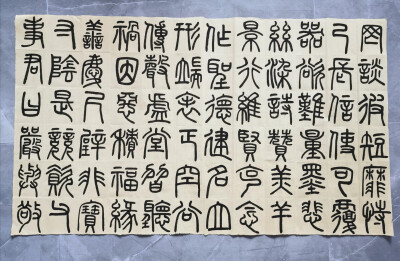 罔談彼短靡恃
己長信使可覆
器欲難量墨悲
絲染詩贊羔羊
景行維賢克念
作聖德建名立
形端表正空谷
傳聲虛堂習聽
禍因惡積福緣
善慶尺璧非寶
寸陰是競資父
事君曰嚴與敬